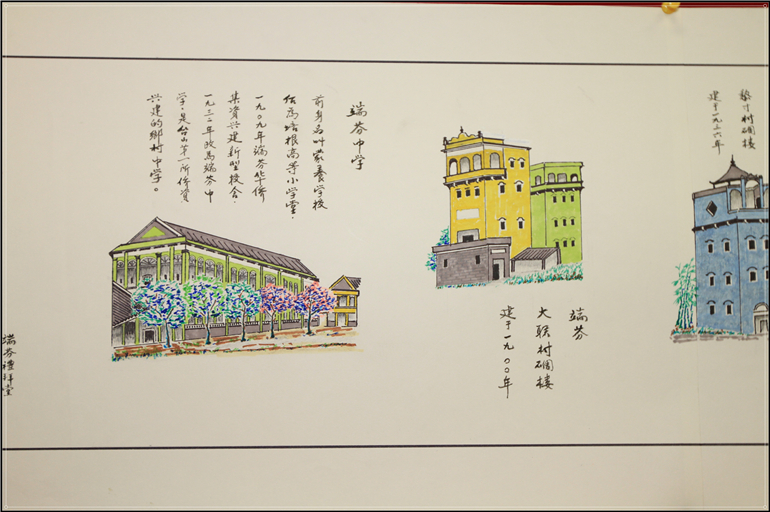 村碉樓
建于一九二六年
端芬
大联村碉樓
建于一九〇〇年
端芬中学
前身名叫蒙養学校
后为培根高等小学堂.
一九〇九年端芬华侨
集资兴建新型校舍.
一九三二年改为端芬中
学,是台山第一所侨资
兴建的鄉村中学。
端芬禮拜堂